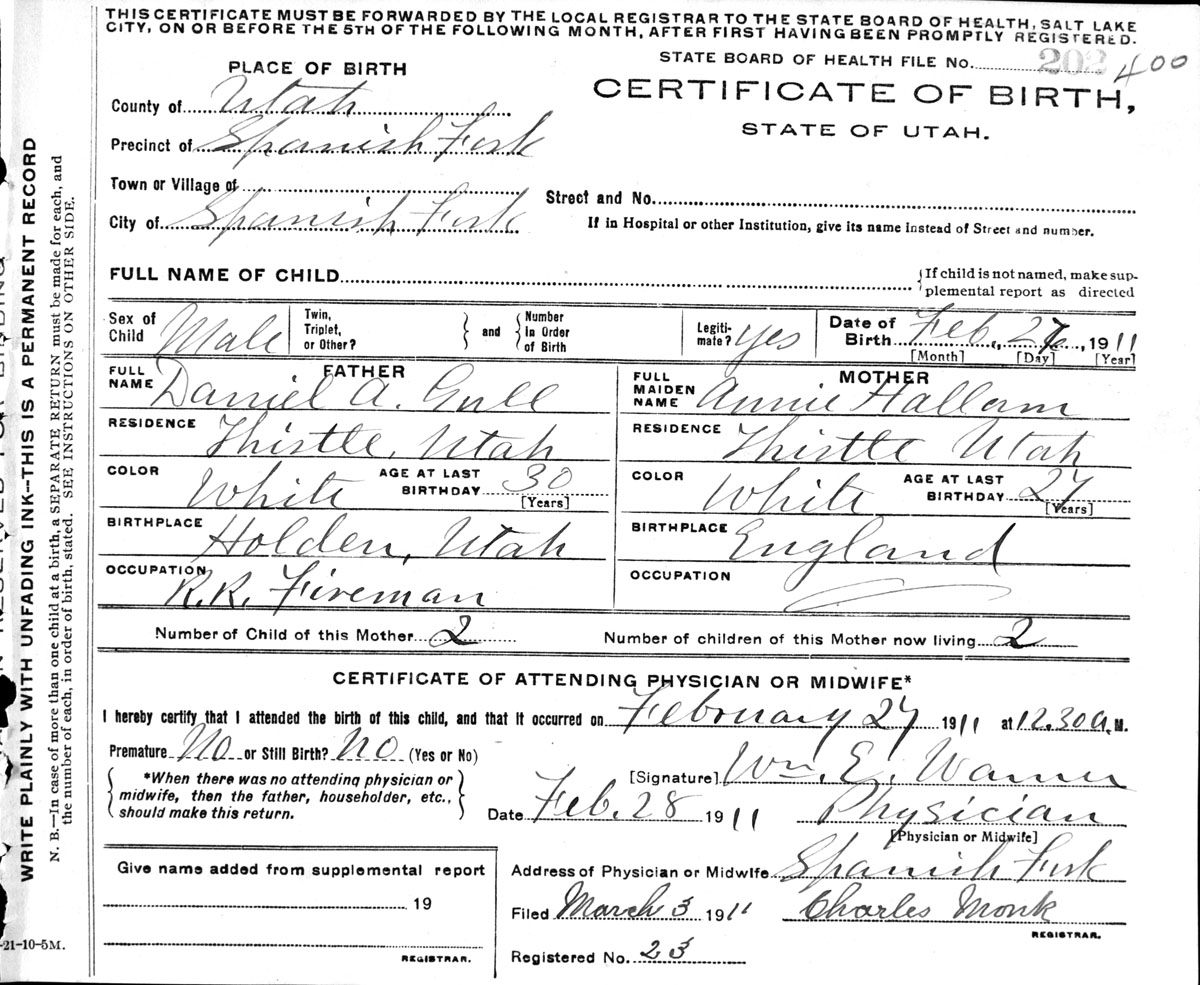 THIS CERTIFICATE MUST BE FORWARDED BY THE LOCAL REGISTRAR TO THE STATE BOARD OF HEALTH, SALT LAKE
CITY, ON OR BEFORE THE 5TH OF THE FOLLOWING MONTH, AFTER FIRST HAVING BEEN PROMPTLY REGISTERED.
STATE BOARD OF HEALTH FILE No. 202 400
PLACE OF BIRTH
CERTIFICATE OF BIRTH,
STATE OF UTAH.
County of Utah
Precinct of Spanish Fork
Town or Village of
Street and No.
City of Spanish Fork
If in Hospital or other Institution, give its name instead of Street and number.
FULL NAME OF CHILD
{If child is not named, make sup-
plemental report as directed
Sex of Child Male
Twin, Triplet, or Other? } and { Number in Order of Birth
Legiti-mate? yes
Date of Birth Feb. 27, 1911
[Month] [Day] [Year]
FATHER
FULL NAME Daniel A. Gull
RESIDENCE Thistle, Utah
COLOR White AGE AT LAST BIRTHDAY 30
[Years]
BIRTHPLACE Holden, Utah
OCCUPATION R.R. Fireman
MOTHER
FULL MAIDEN NAME Annie Hallam
RESIDENCE Thistle Utah
COLOR White AGE AT LAST BIRTHDAY 27
[Years]
BIRTHPLACE England
OCCUPATION
Number of Child of this Mother 2 Number of children of this Mother now living 2
CERTIFICATE OF ATTENDING PHYSICIAN OR MIDWIFE*
I hereby certify that I attended the birth of this child, and that it occurred on February 27 1911 at 12.30 a. M.
Premature No or Still Birth? No (Yes or No)
{ *When there was no attending physician or
midwife, then the father, householder, etc.,
should make this return. }
[Signature] Wm. E. Warner
Date Feb. 28 1911 Physician
[Physician or Midwife]
Give name added from supplemental report
19
REGISTRAR.
Address of Physician or Midwife Spanish Fork
Filed March 3 1911 Charles Monk
REGISTRAR.
Registered No. 23
WRITE PLAINLY WITH UNFADING INK--THIS IS A PERMANENT RECORD
N. B.—In case of more than one child at a birth, a SEPARATE RETURN must be made for each, and
the number of each, in order of birth, stated. SEE INSTRUCTIONS ON OTHER SIDE.
-21-10-5M.